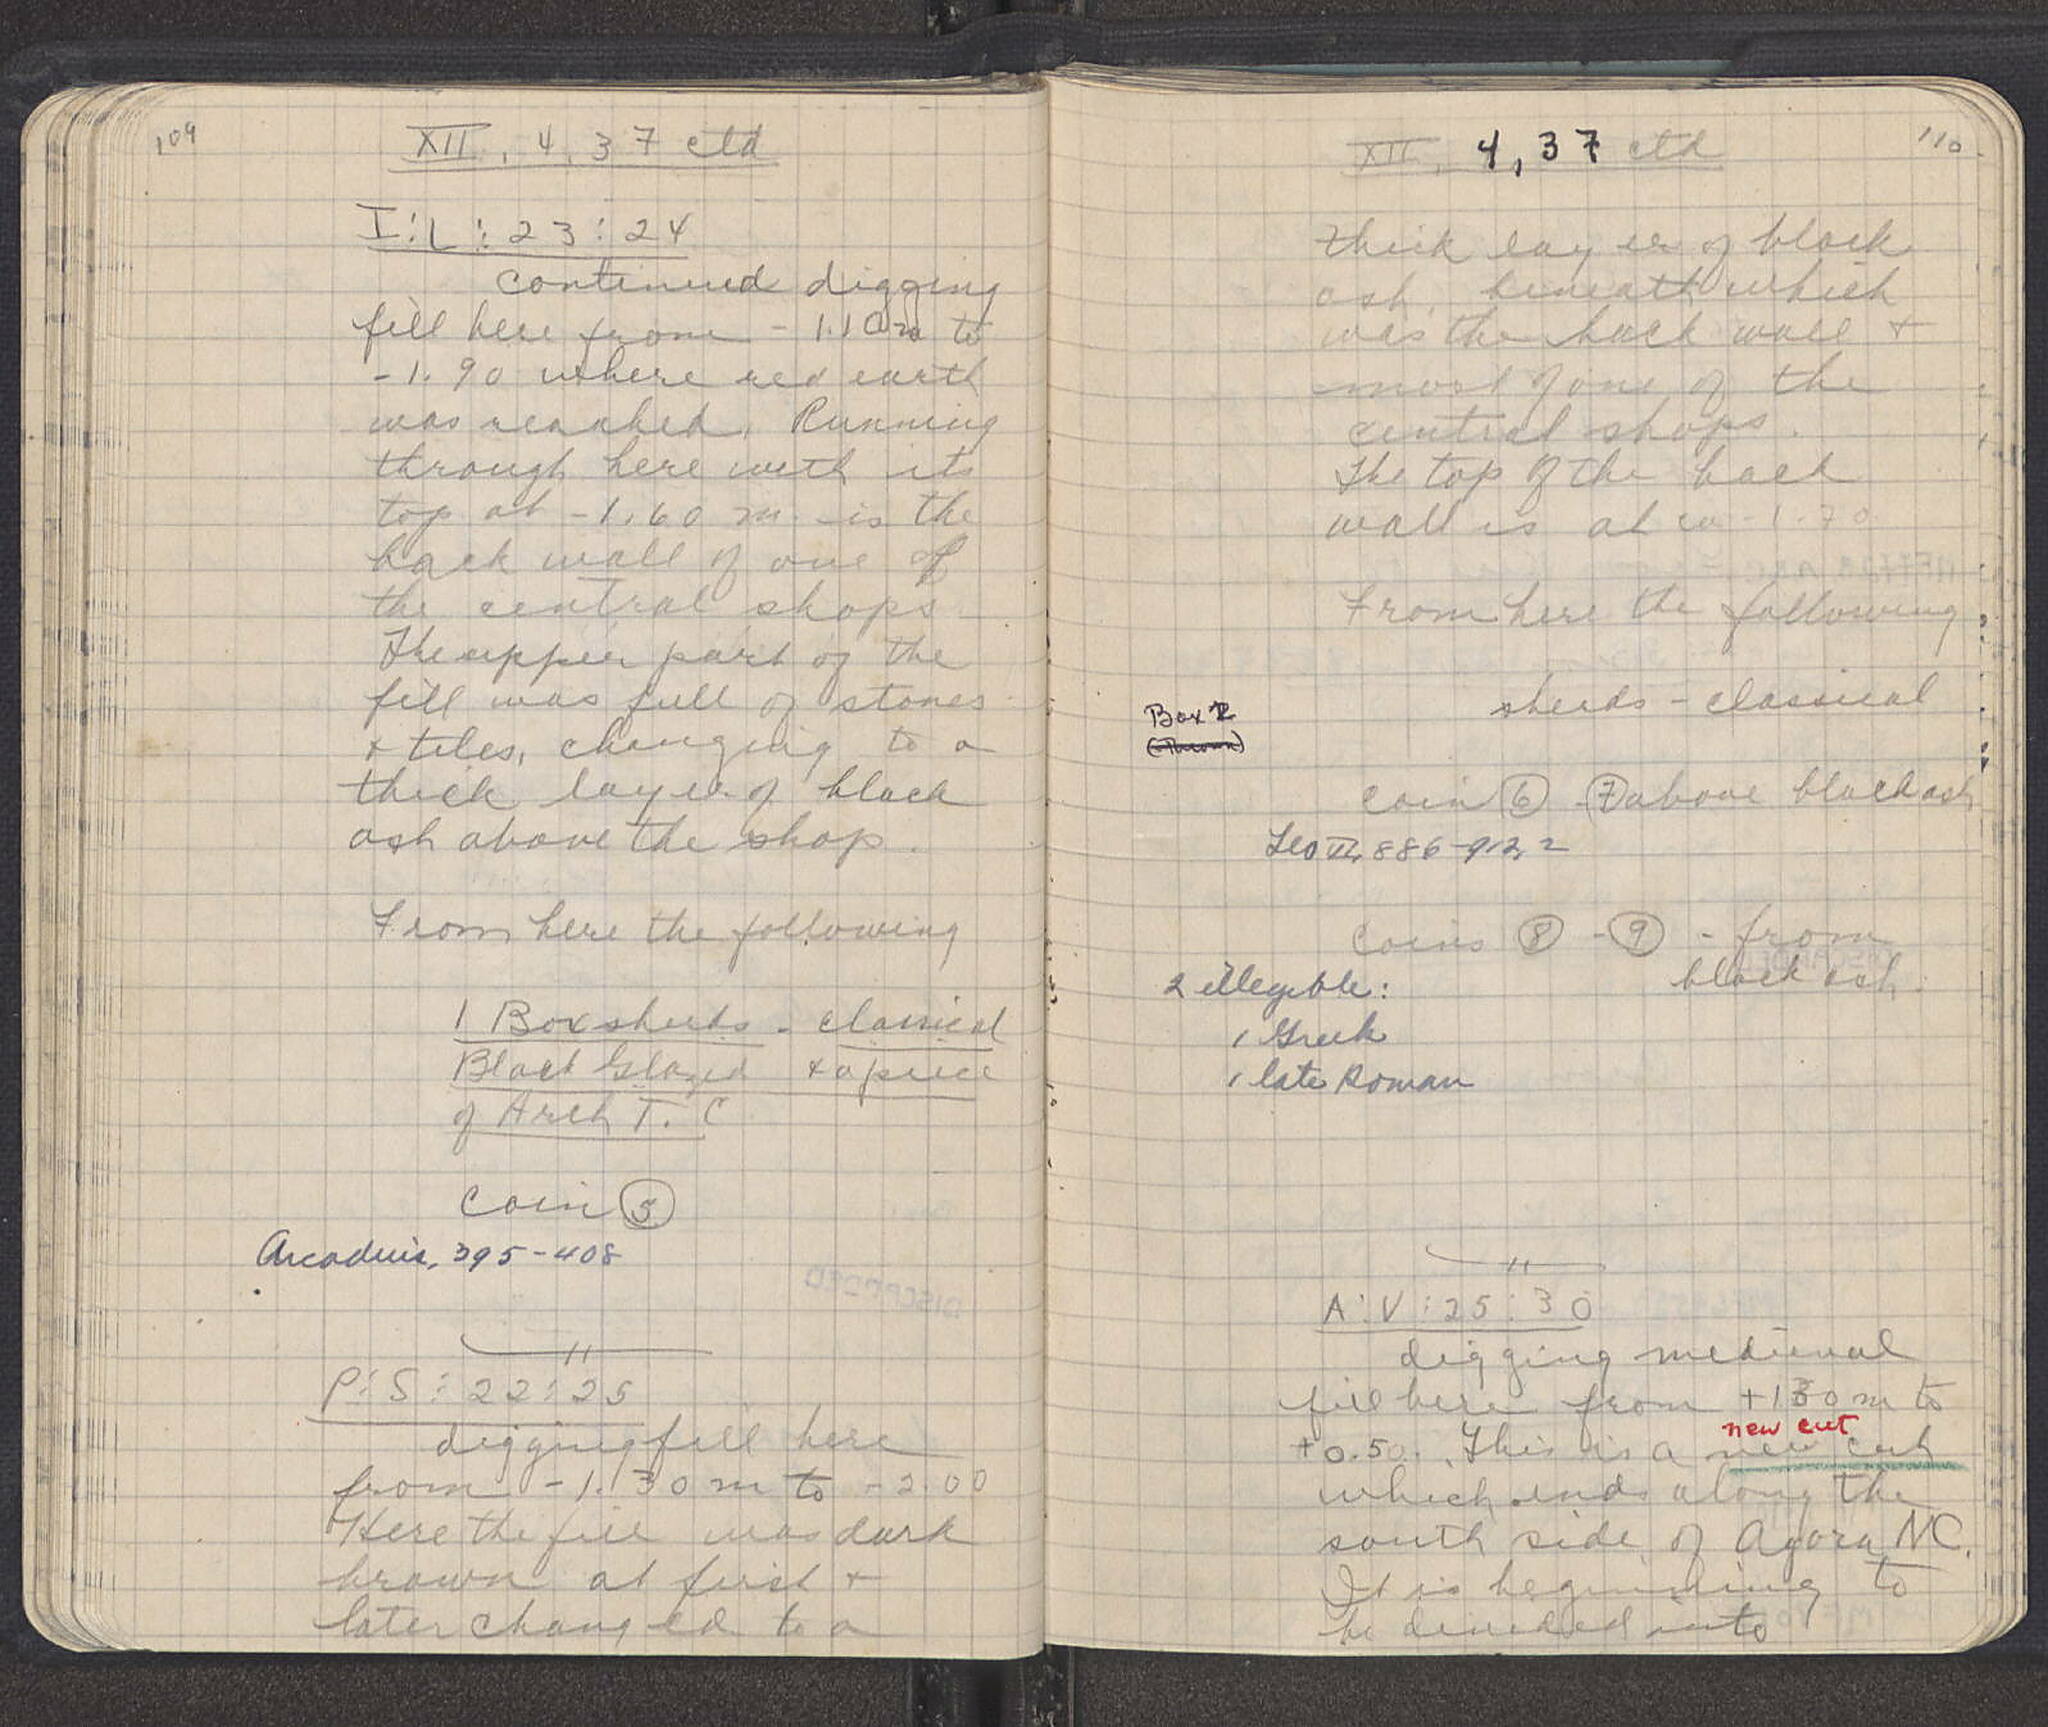 109
XII, 4, 37 ctd
I:L:23:24
continued digging
fill here from - 1.10 m to
-1.90 where red earth
was reached. Running
through here with its
top at -1.60 m. is the
back wall of one of
the central shops
The upper part of the
fill was full of stones
+ tiles, changing to a
thick layer of black
ash above the shop.
From here the following
1 Box sherds - classical
Black Glazed + a piece
of Arch T. C
Coin 5
Arcadius, 395-408
P:S:22:25
digging fill here
from -1.30 m to -2.00
Here the fill was dark
brown at first +
later changed to a
110
XII, 4, 37 ctd
thick layer of black
ash, beneath which
was the back wall +
most of one of the
central shops.
The top of the back
wall is at ca -1.70
From here the following
sherds - classical
Box 2
(Thrown)
Coin 6 - 7 above black ash
Leo VI, 886-912
Coins 8 - 9 - from
black ash.
2 illegible:
1 Greek
1 late Roman
A:V:25:30
digging medieval
fill here from +1.30 m to
new cut
+0.50. This is a new cut
which ends along the
south side of Agora NC.
It is beginning to
be divided into